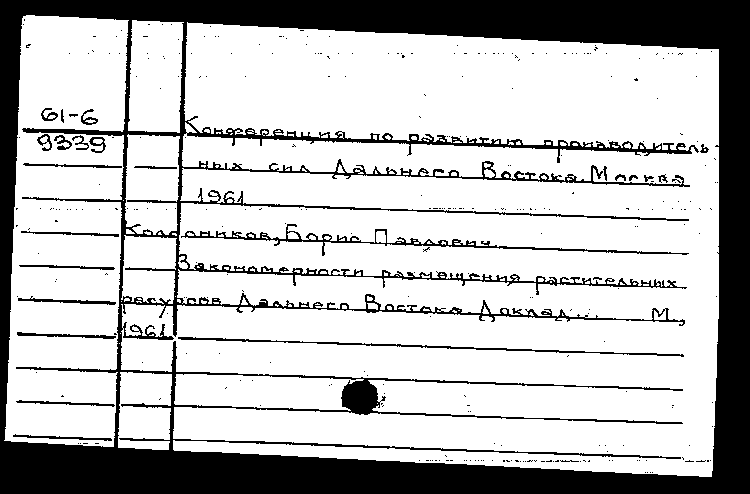 61-6
9339
Конференция по развитию производитель-
ных сил Дальнего Востока. Москва
1961
Колесников, Борис Павлович.
Закономерности размещения растительных
ресурсов Дальнего Востока. Доклад... М.,
1961.